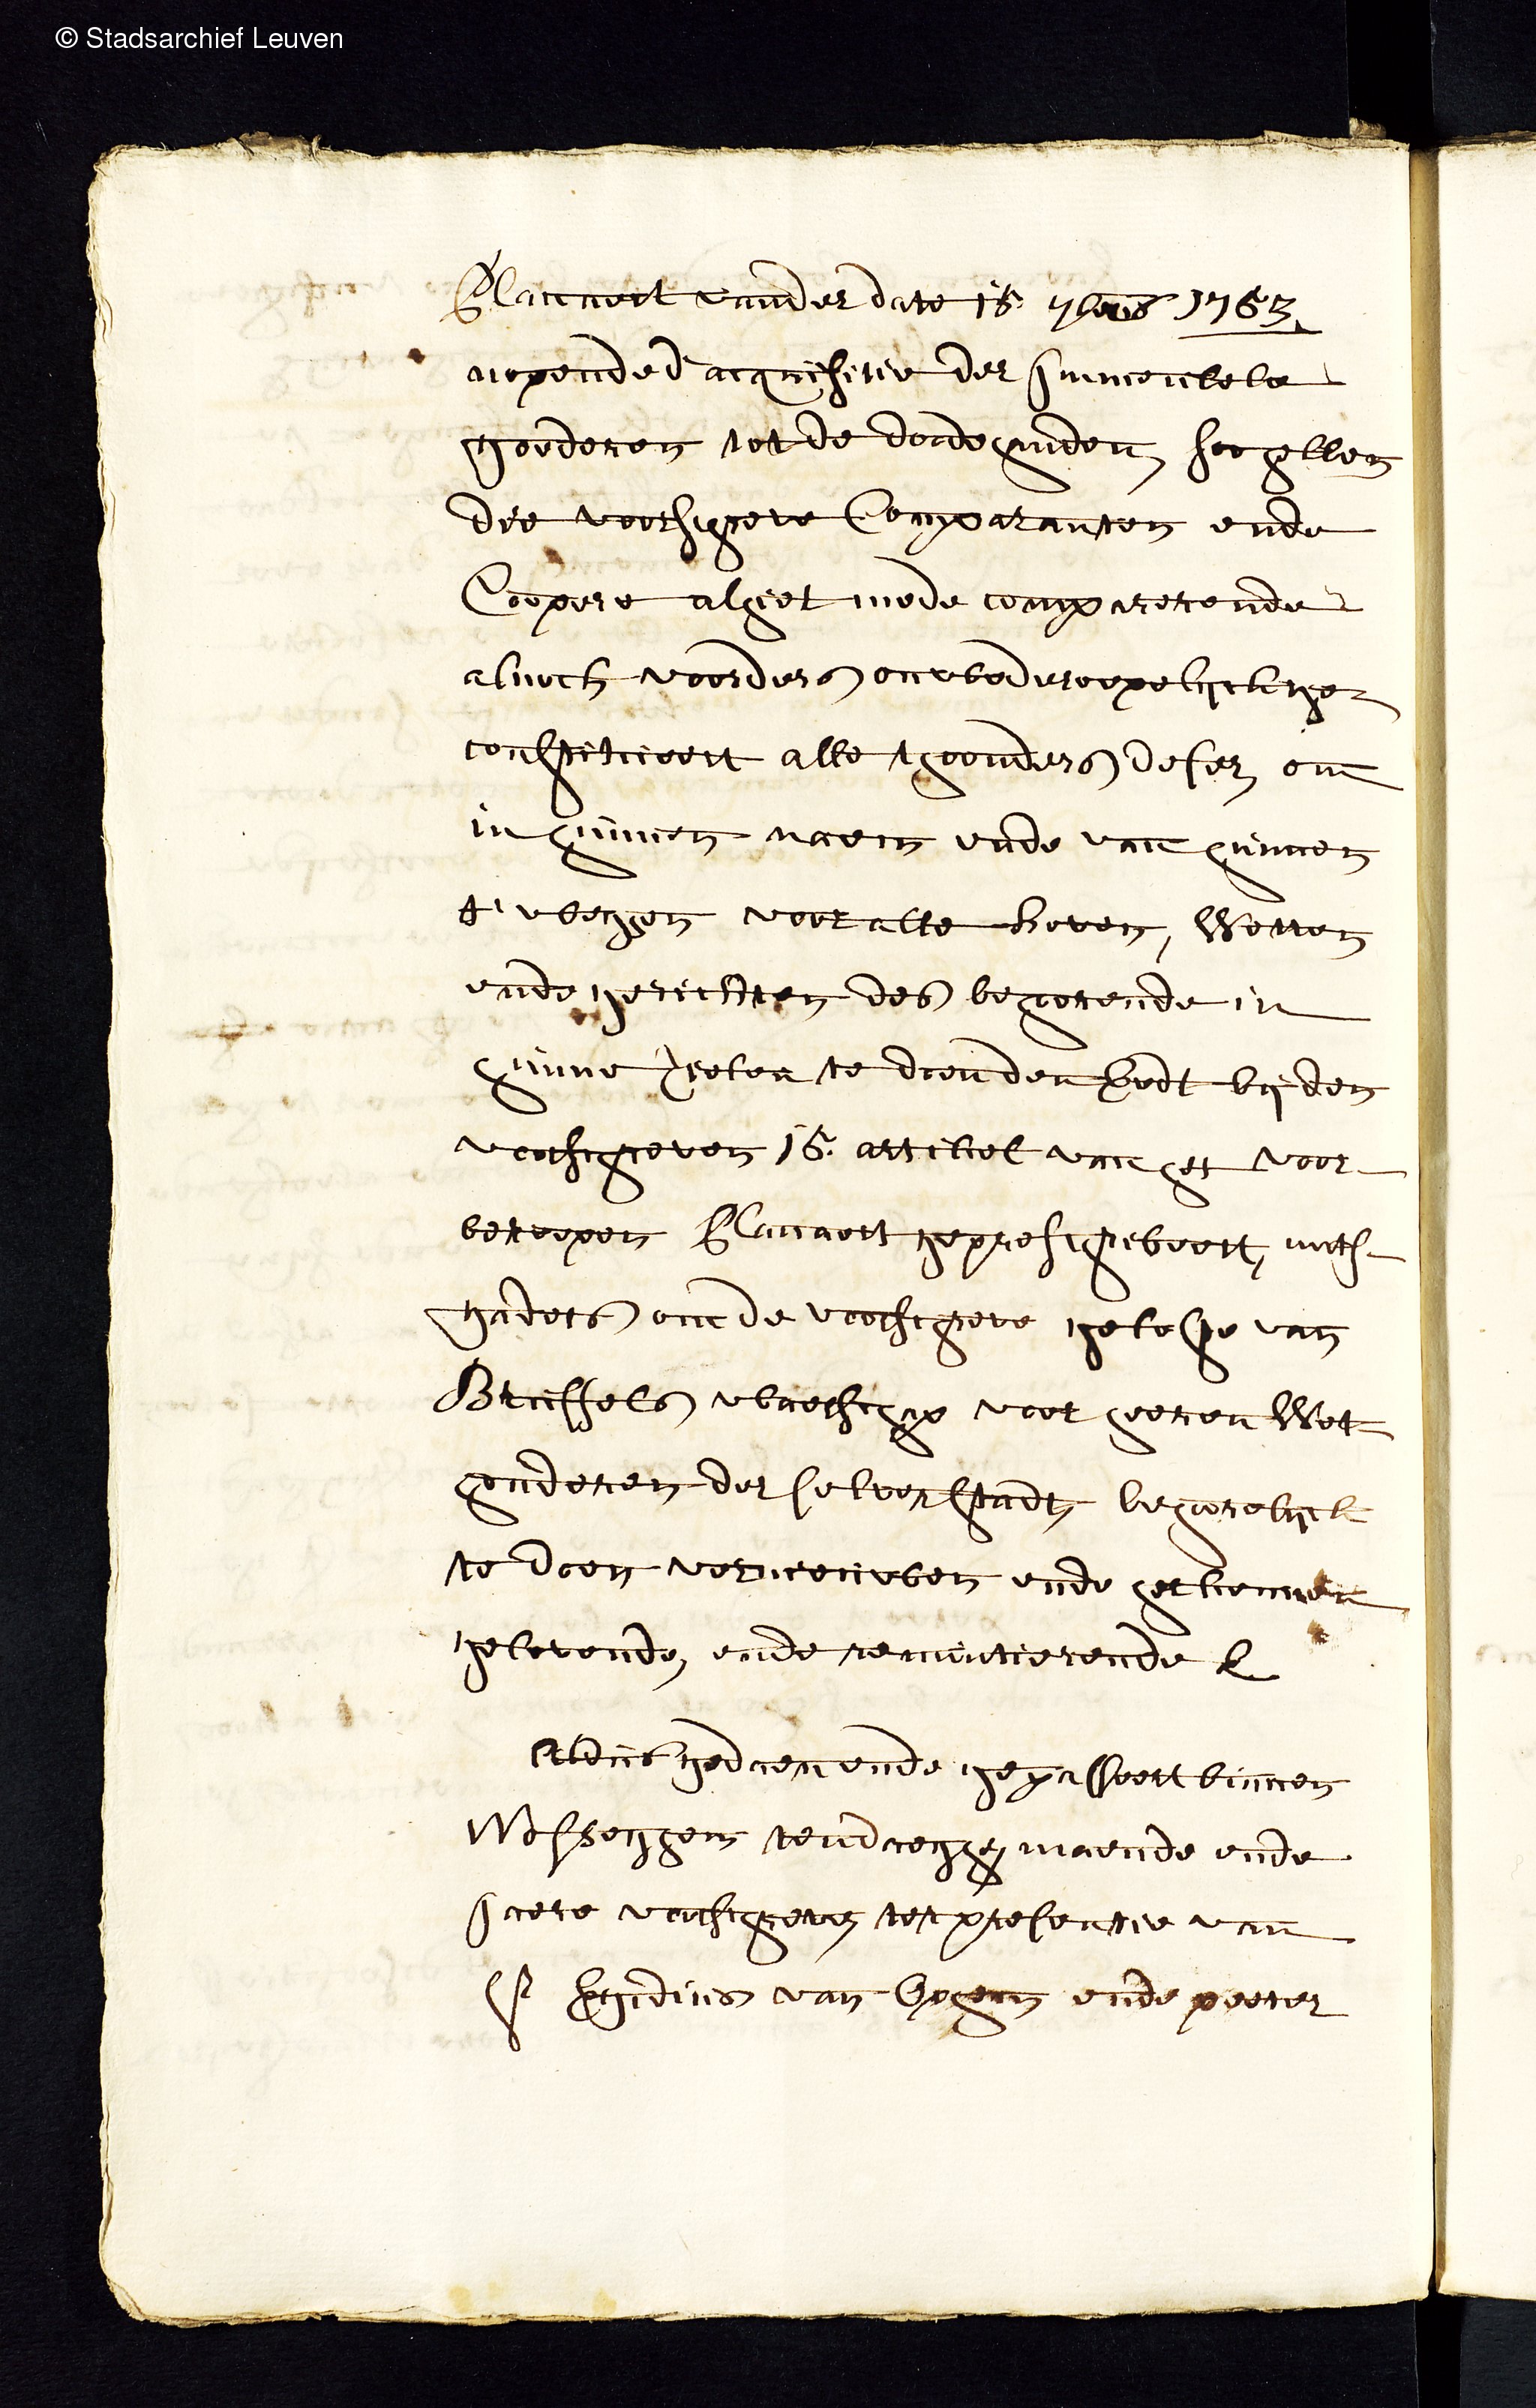 © Stadsarchief Leuven
Placcaert vander date 15. 7bris 1753,
nopende d'acquisitie der Immeubele
goederen tot de doode handen, soo hebben
die voorschreve Comparanten ende
Coopere alhier mede comparerende
alnoch voorders onwederroepelyck ge-
constitueert alle thoonders deser, om
in hunnen naem ende van hunnen
t'wegen voor alle hoven, Wetten
ende gerichten des behoorende in
hunne zielen te doen den Eedt by den
voorschreven 15. artikel van het voor-
beroepen Placcaert geprescribeert, mits-
gaders om de voorschreve gelofte van
Brussels waerschap voor heeren Wet-
houderen der selver stadt, behoorelyck
te doen vernieuwen ende herkennen
gelovende, ende renuntierende &
Aldus gedaen ende gepasseert binnen
Messeghem ten daeghe, maende ende
Jaere voorschreven, ter presentie van
Sr Egidius van Ophem ende peeter